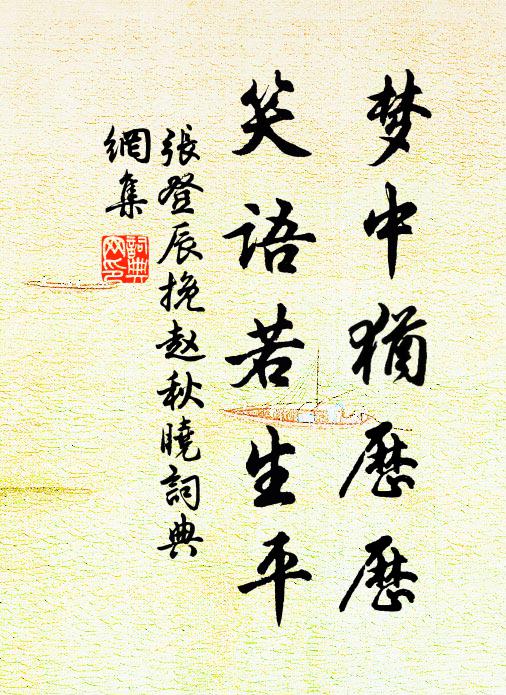 梦中猶歷歷
笑语若生平
張登辰挽赵秋曉詞典
網集
詞典
网印